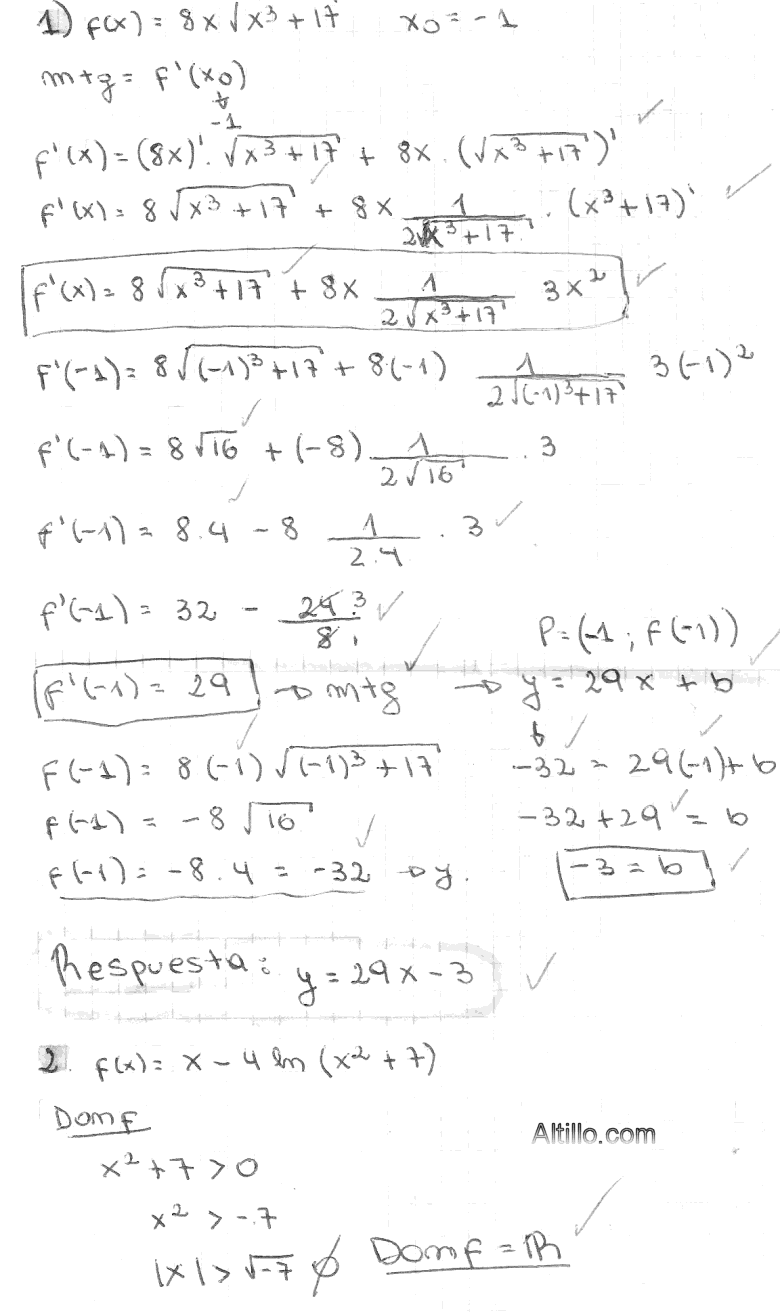 1) f(x) = 8x √(x³+17)    x₀ = -1
mtg = f'(x₀)
↓
-1
f'(x) = (8x)'. √(x³+17) + 8x . (√(x³+17))'
f'(x) = 8 √(x³+17) + 8x 1/(2√(x³+17)) . (x³+17)'
f'(x) = 8 √(x³+17) + 8x 1/(2√(x³+17)) 3x²
f'(-1) = 8√((-1)³+17) + 8.(-1) 1/(2√((-1)³+17)) 3(-1)²
f'(-1) = 8√16 + (-8) 1/(2√16) . 3
f'(-1) = 8.4 - 8 1/(2.4) . 3
f'(-1) = 32 - 24/8
3
1
f'(-1) = 29 → mtg
f(-1) = 8(-1) √((-1)³+17)
f(-1) = -8 √16
f(-1) = -8.4 = -32 → y.
P = (-1 ; f(-1))
→ y = 29x + b
↓
-32 = 29(-1) + b
-32 + 29 = b
-3 = b
Respuesta: y = 29x - 3
2. f(x) = x - 4 ln (x² + 7)
Dom f
Altillo.com
x² + 7 > 0
x² > -7
|x| > √-7 ∅    Dom f = ℝ